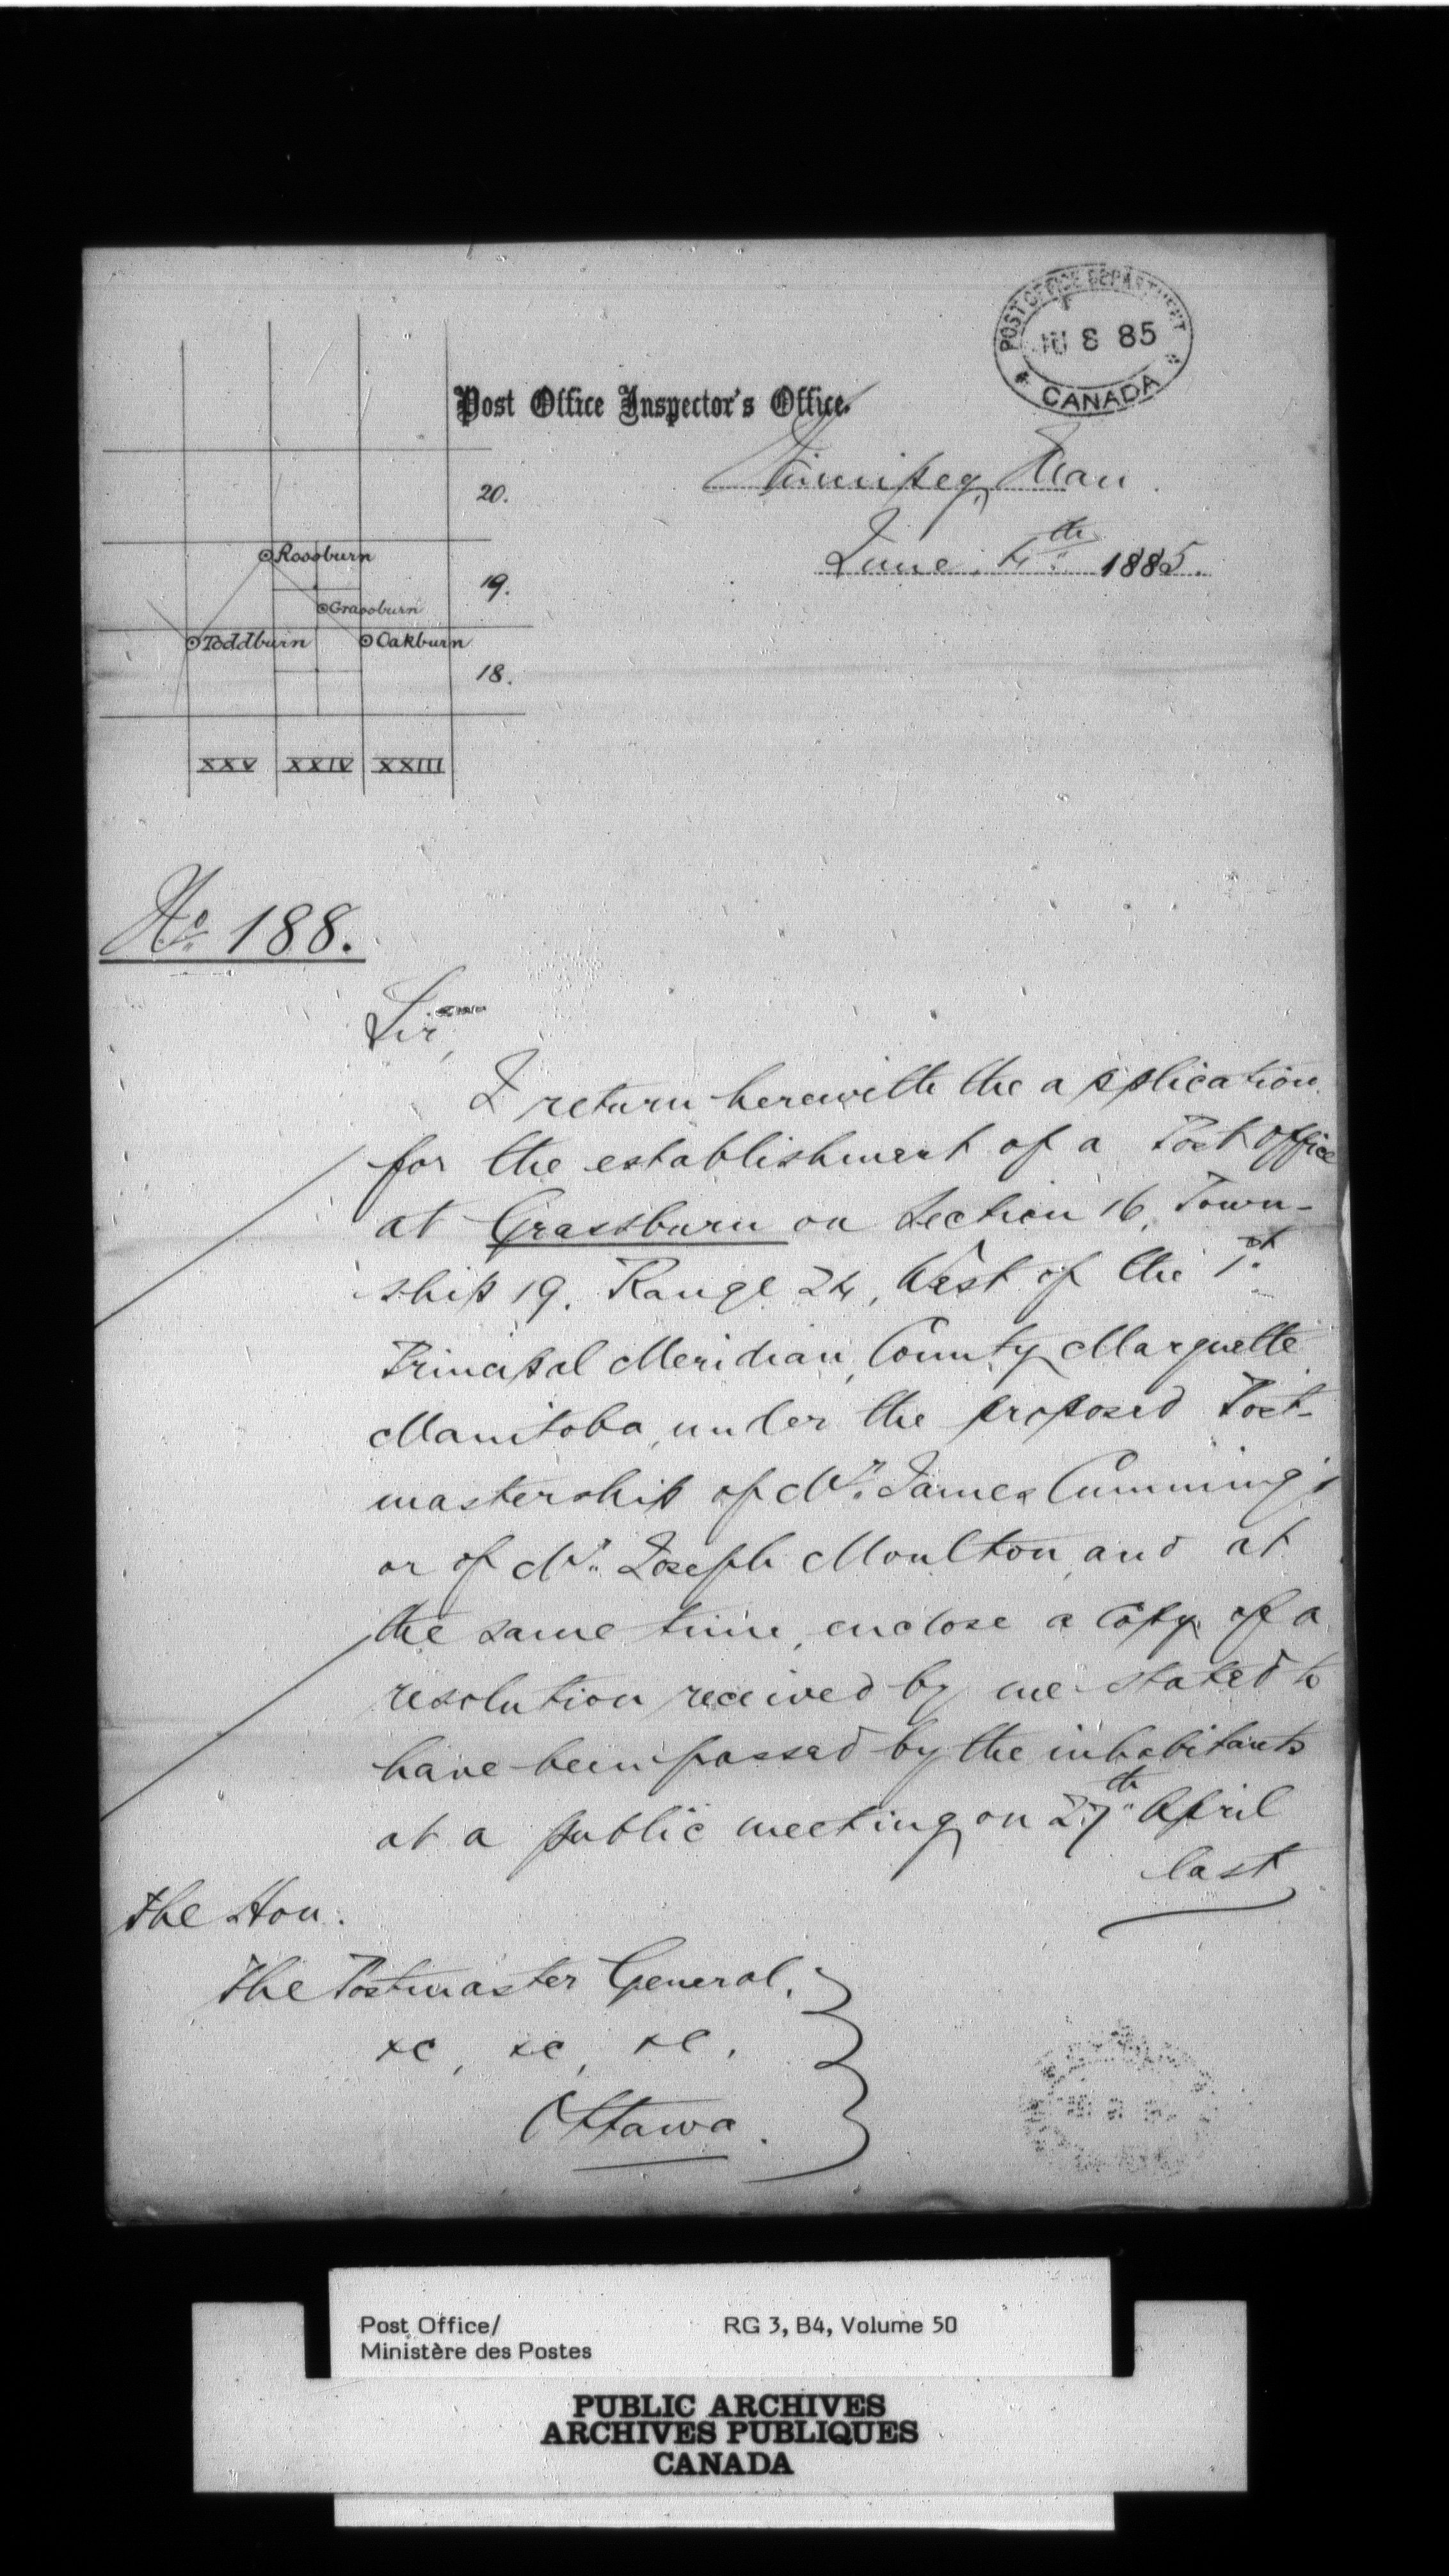 POST OFFICE DEPARTMENT
8 85
CANADA
Post Office Inspector's Office.
Winnipeg, Man.
June 4th 1885.
20.
Rossburn
19.
Grassburn
Toddburn
Oakburn
18.
XXV XXIV XXIII
No 188.
Sir,
I return herewith the application
for the establishment of a Post Office
at Grassburn on Section 16, Town-
ship 19. Range 24, West of the 1st
Principal Meridian, County Marquette
Manitoba, under the proposed Post-
mastership of Mr. James Cumming's
or of Mr. Joseph Moulton, and at
the same time, enclose a copy of a
resolution received by me stated to
have been passed by the inhabitants
at a public meeting on 27th April
last
The Hon.
The Postmaster General.
&c, &c, &c.
Ottawa.
Post Office/
Ministère des Postes
RG 3, B4, Volume 50
PUBLIC ARCHIVES
ARCHIVES PUBLIQUES
CANADA